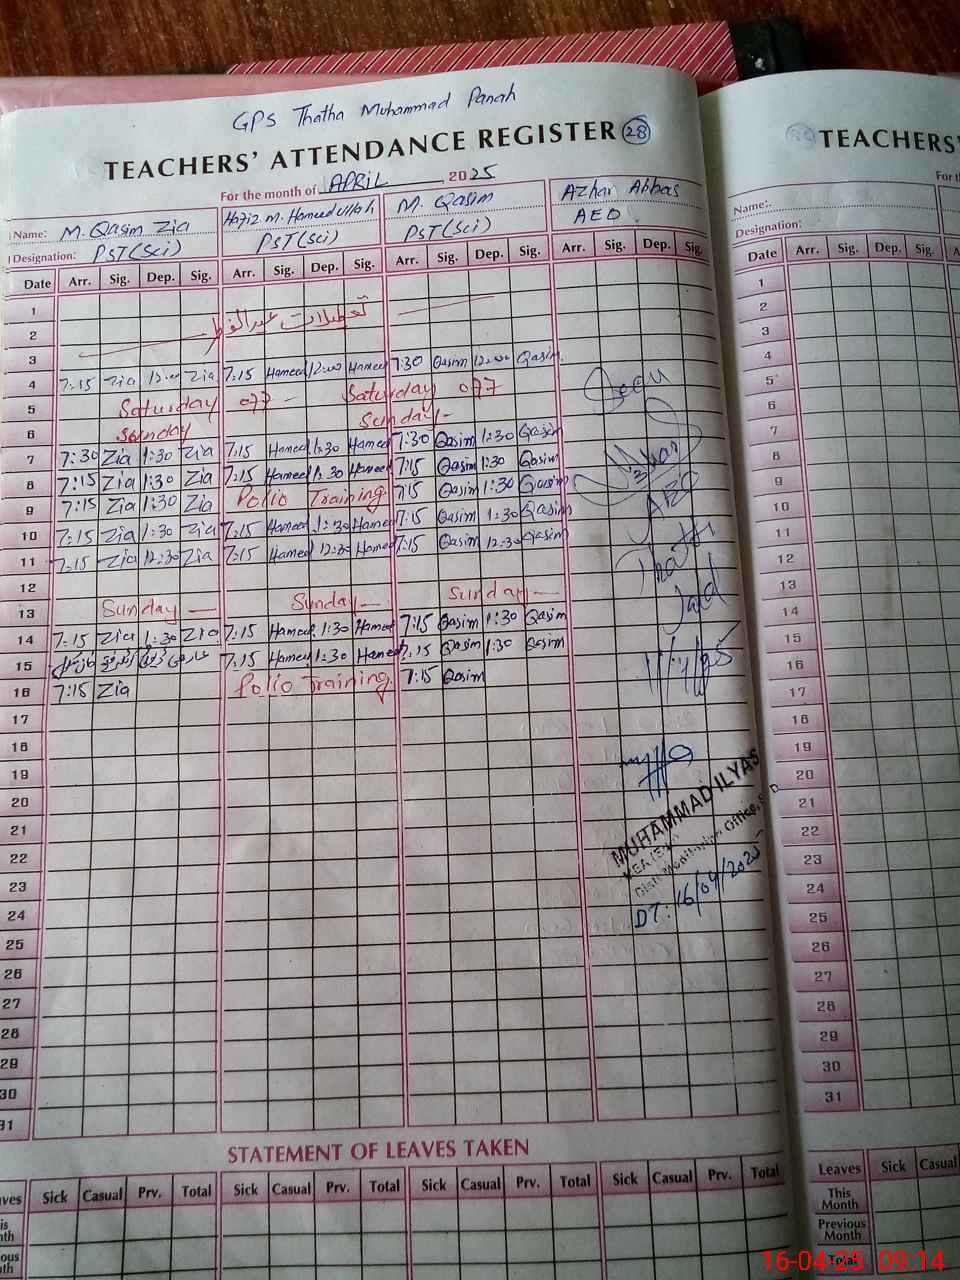 GPS Thatha Muhammad Panah
TEACHERS' ATTENDANCE REGISTER 28
For the month of APRIL 2025
Name: M. Qasim Zia Hafiz M. Hameedullah M. Qasim Azhar Abbas
Designation: PST(Sci) PST(Sci) PST(Sci) AEO
Date Arr. Sig. Dep. Sig. Arr. Sig. Dep. Sig. Arr. Sig. Dep. Sig. Arr. Sig. Dep. Sig.
1
2 تعطیلات عید الفطر
3
4 7:15 Zia 12:00 Zia 7:15 Hameed 12:00 Hameed 7:30 Qasim 12:00 Qasim
5 Saturday off Saturday off
6 Sunday Sunday
7 7:30 Zia 1:30 Zia 7:15 Hameed 1:30 Hameed 7:30 Qasim 1:30 Qasim
8 7:15 Zia 1:30 Zia 7:15 Hameed 1:30 Hameed 7:15 Qasim 1:30 Qasim
9 7:15 Zia 1:30 Zia Polio Training 7:15 Qasim 1:30 Qasim
10 7:15 Zia 1:30 Zia 7:15 Hameed 1:30 Hameed 7:15 Qasim 1:30 Qasim
11 7:15 Zia 12:30 Zia 7:15 Hameed 12:30 Hameed 7:15 Qasim 12:30 Qasim
12
13 Sunday Sunday Sunday
14 7:15 Zia 1:30 Zia 7:15 Hameed 1:30 Hameed 7:15 Qasim 1:30 Qasim
15 7:15 Hameed 1:30 Hameed 7:15 Qasim 1:30 Qasim
16 7:15 Zia Polio Training 7:15 Qasim
17
18
19
20
21
22
23
24
25
26
27
28
29
30
31
Seen
Azhar
AEO
Thatti
11/4/25
MUHAMMAD ILYAS
DT: 16/04/2025
STATEMENT OF LEAVES TAKEN
Sick Casual Prv. Total Sick Casual Prv. Total Sick Casual Prv. Total Sick Casual Prv. Total
TEACHERS'
Name:
Designation:
Date Arr. Sig. Dep. Sig.
1
2
3
4
5
6
7
8
9
10
11
12
13
14
15
16
17
18
19
20
21
22
23
24
25
26
27
28
29
30
31
Leaves Sick Casual
This Month
Previous Month
Total
16-04-25 09:14